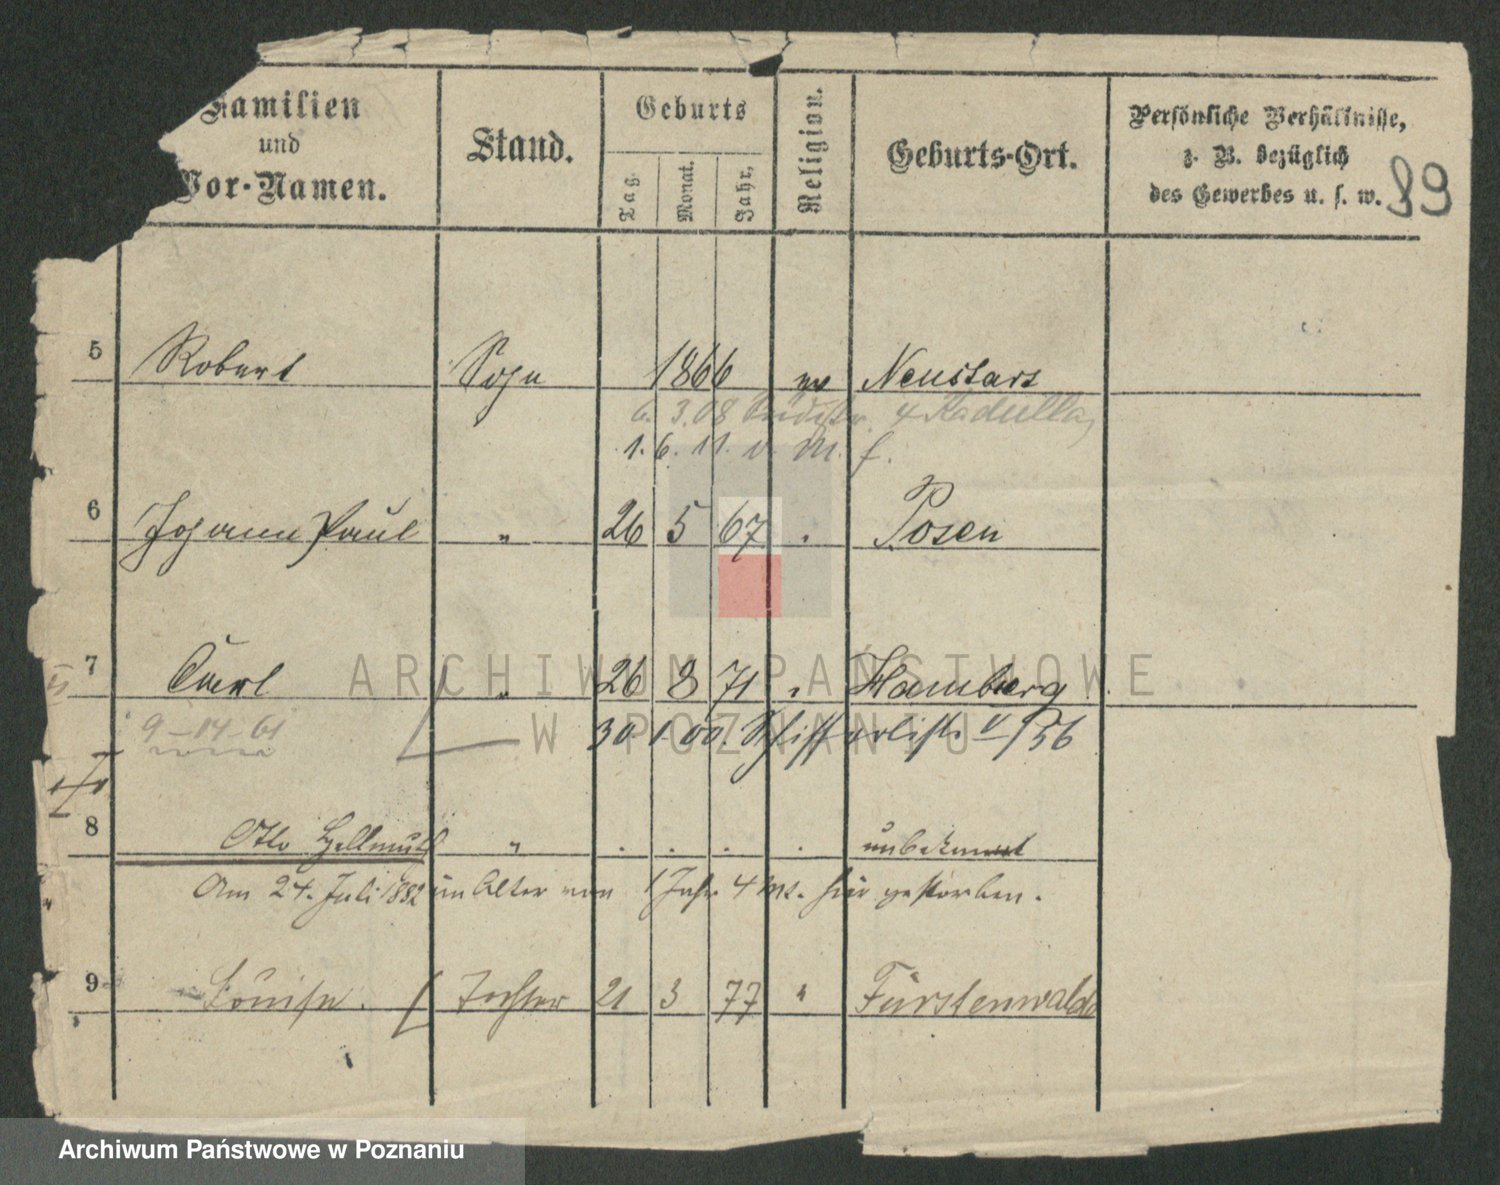 Familien
und
Vor-Namen.
Stand.
Geburts
Tag.
Monat.
Jahr,
Religion.
Geburts-Ort.
Persönliche Verhältnisse,
z. B. bezüglich
des Gewerbes u. s. w.
89
5 Robert Sohn 1866 ev Neustars
6. 3.08 4 Kadulla
1. 6. 11. v. M. f.
6 Johann Paul " 26 5 67 . Posen
7 Carl " 26 8 71 " Hamburg
9-14-61
30. 1. 00. Schifferliste V/56
8 Otto Hellmuth " . . . . unbekannt
Am 24. Juli 1882 im Alter von 1 Jahr 4 Mt. hier gestorben.
9 Louise. Tochter 21 3 77 " Fürstenwalde
ARCHIWUM PAŃSTWOWE
W POZNANIU
Archiwum Państwowe w Poznaniu